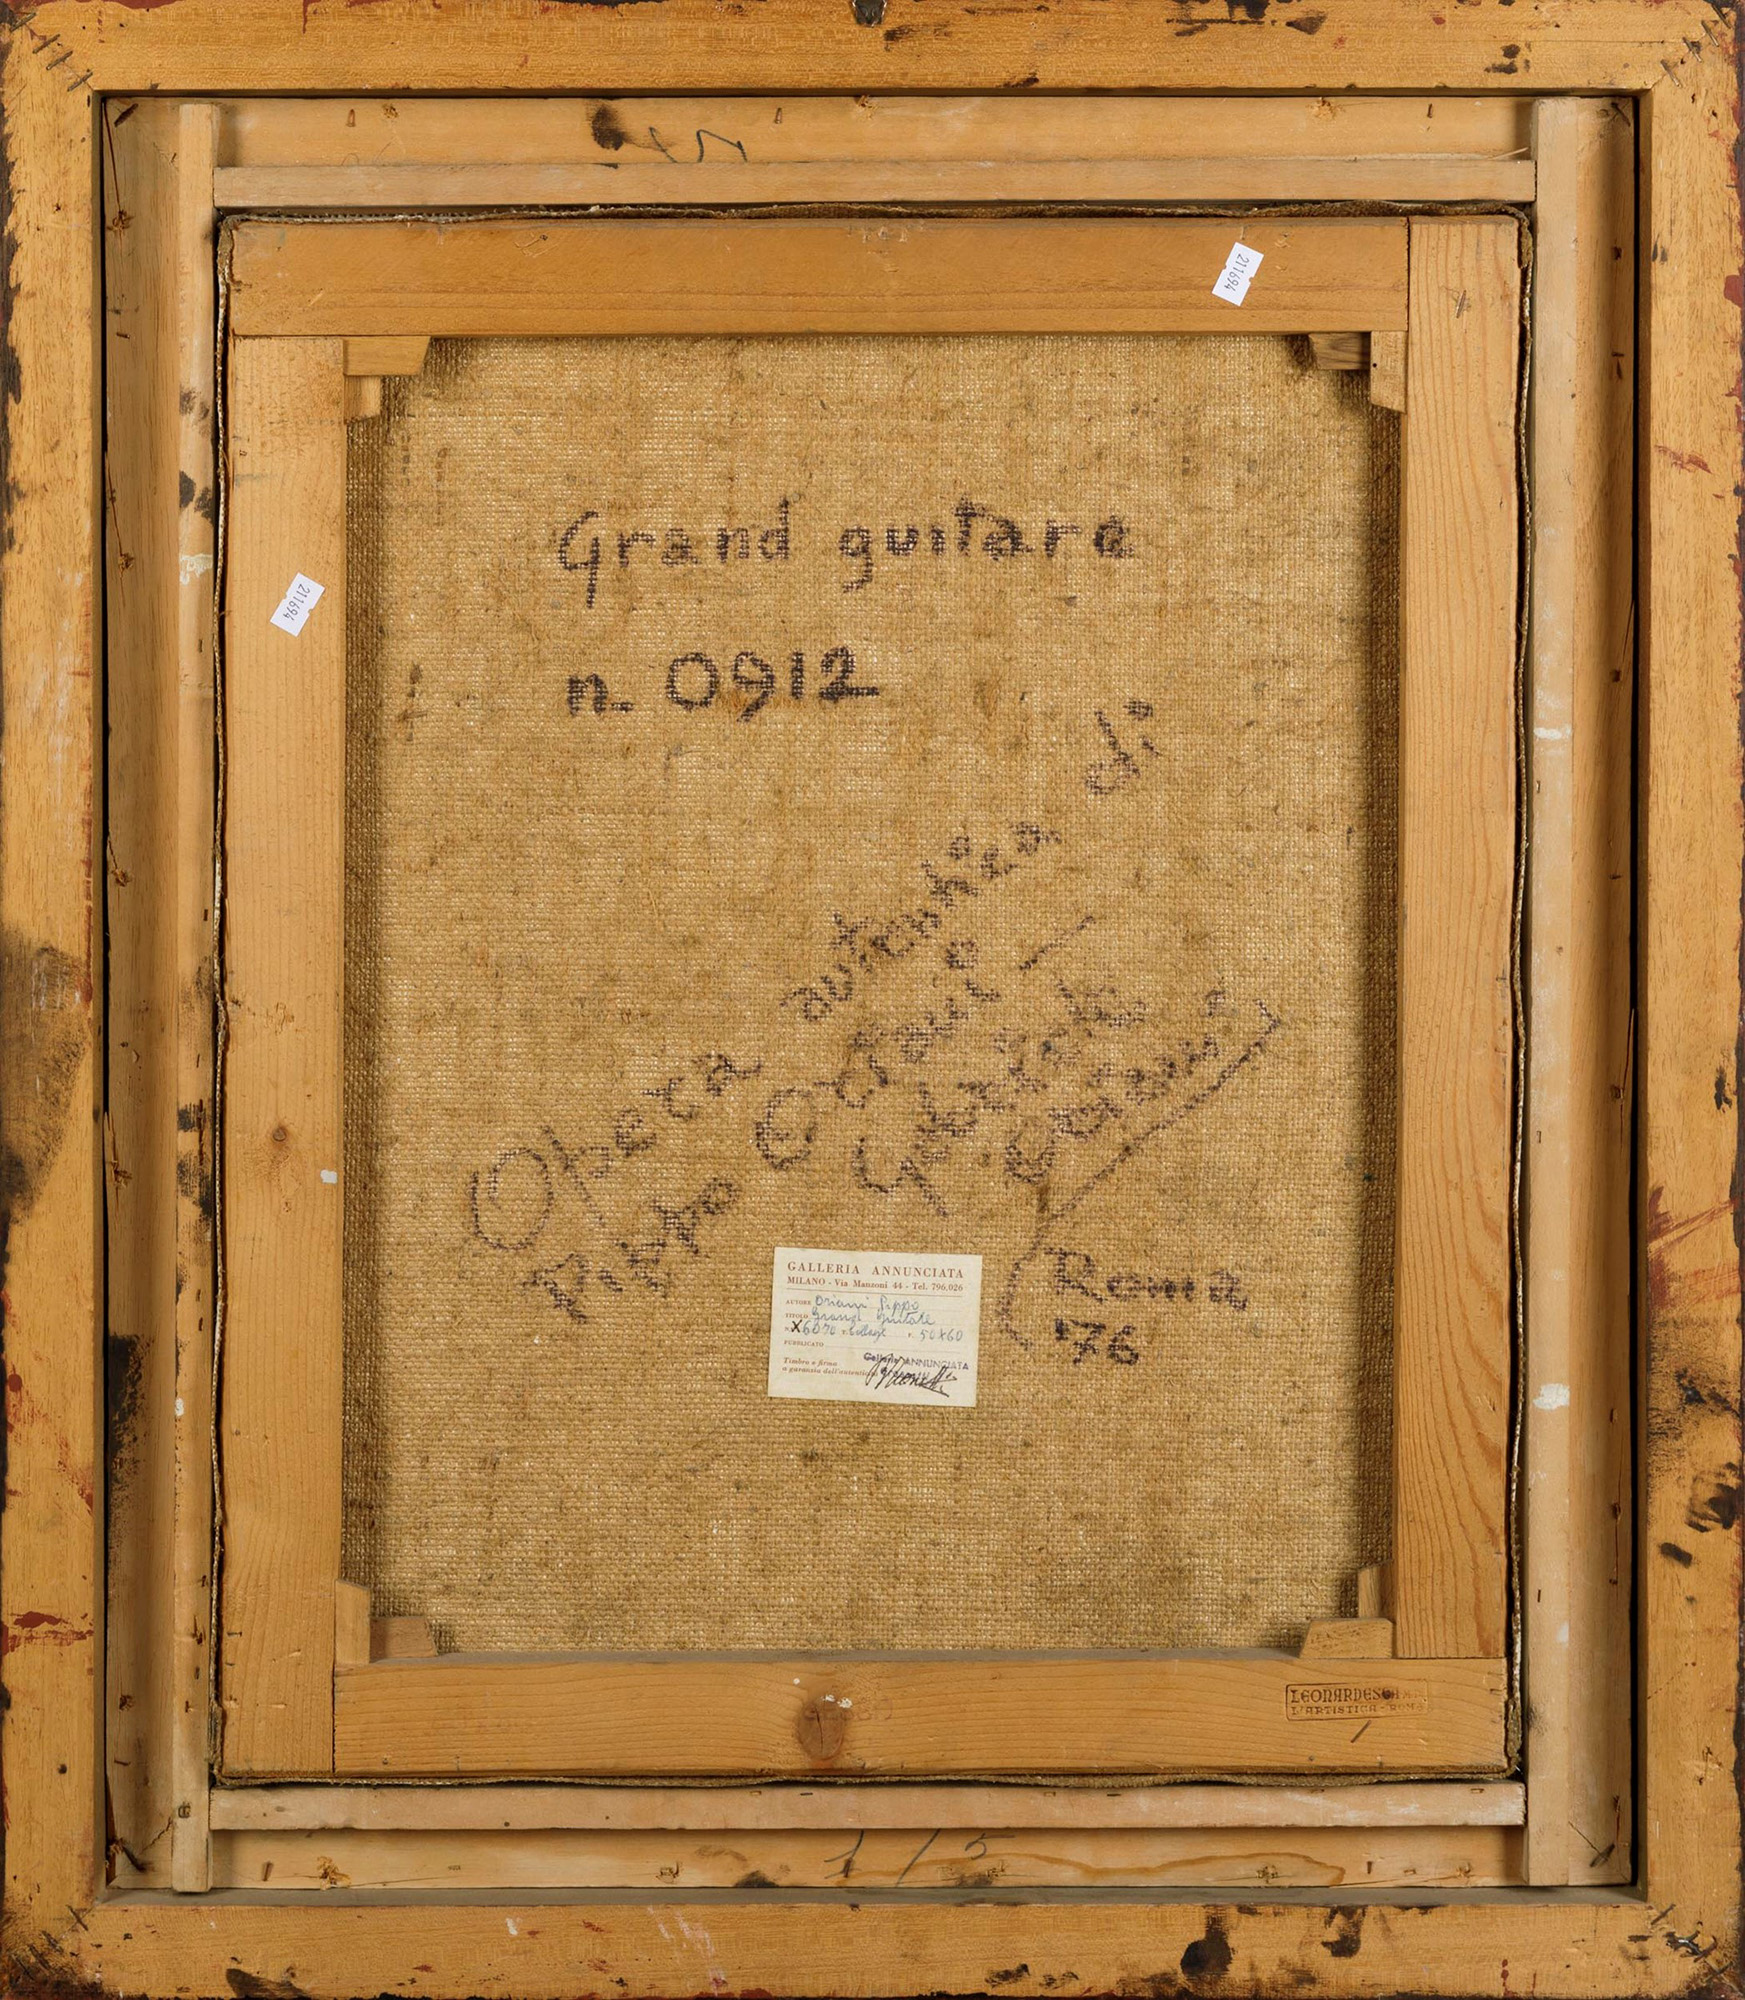 211694
211694
Grand guitare
n. 0912
Opera autentica di
Pippo Oriani
Roma
'76
GALLERIA ANNUNCIATA
MILANO - Via Manzoni 44 - Tel. 796.026
AUTORE Oriani Pippo
TITOLO Grand Guitare
X6070 T. Collage F. 50x60
PUBBLICATO
Timbro e firma
a garanzia dell'autenticità
Galleria ANNUNCIATA
LEONARDESCA
L'ARTISTICA - ROMA
1/5